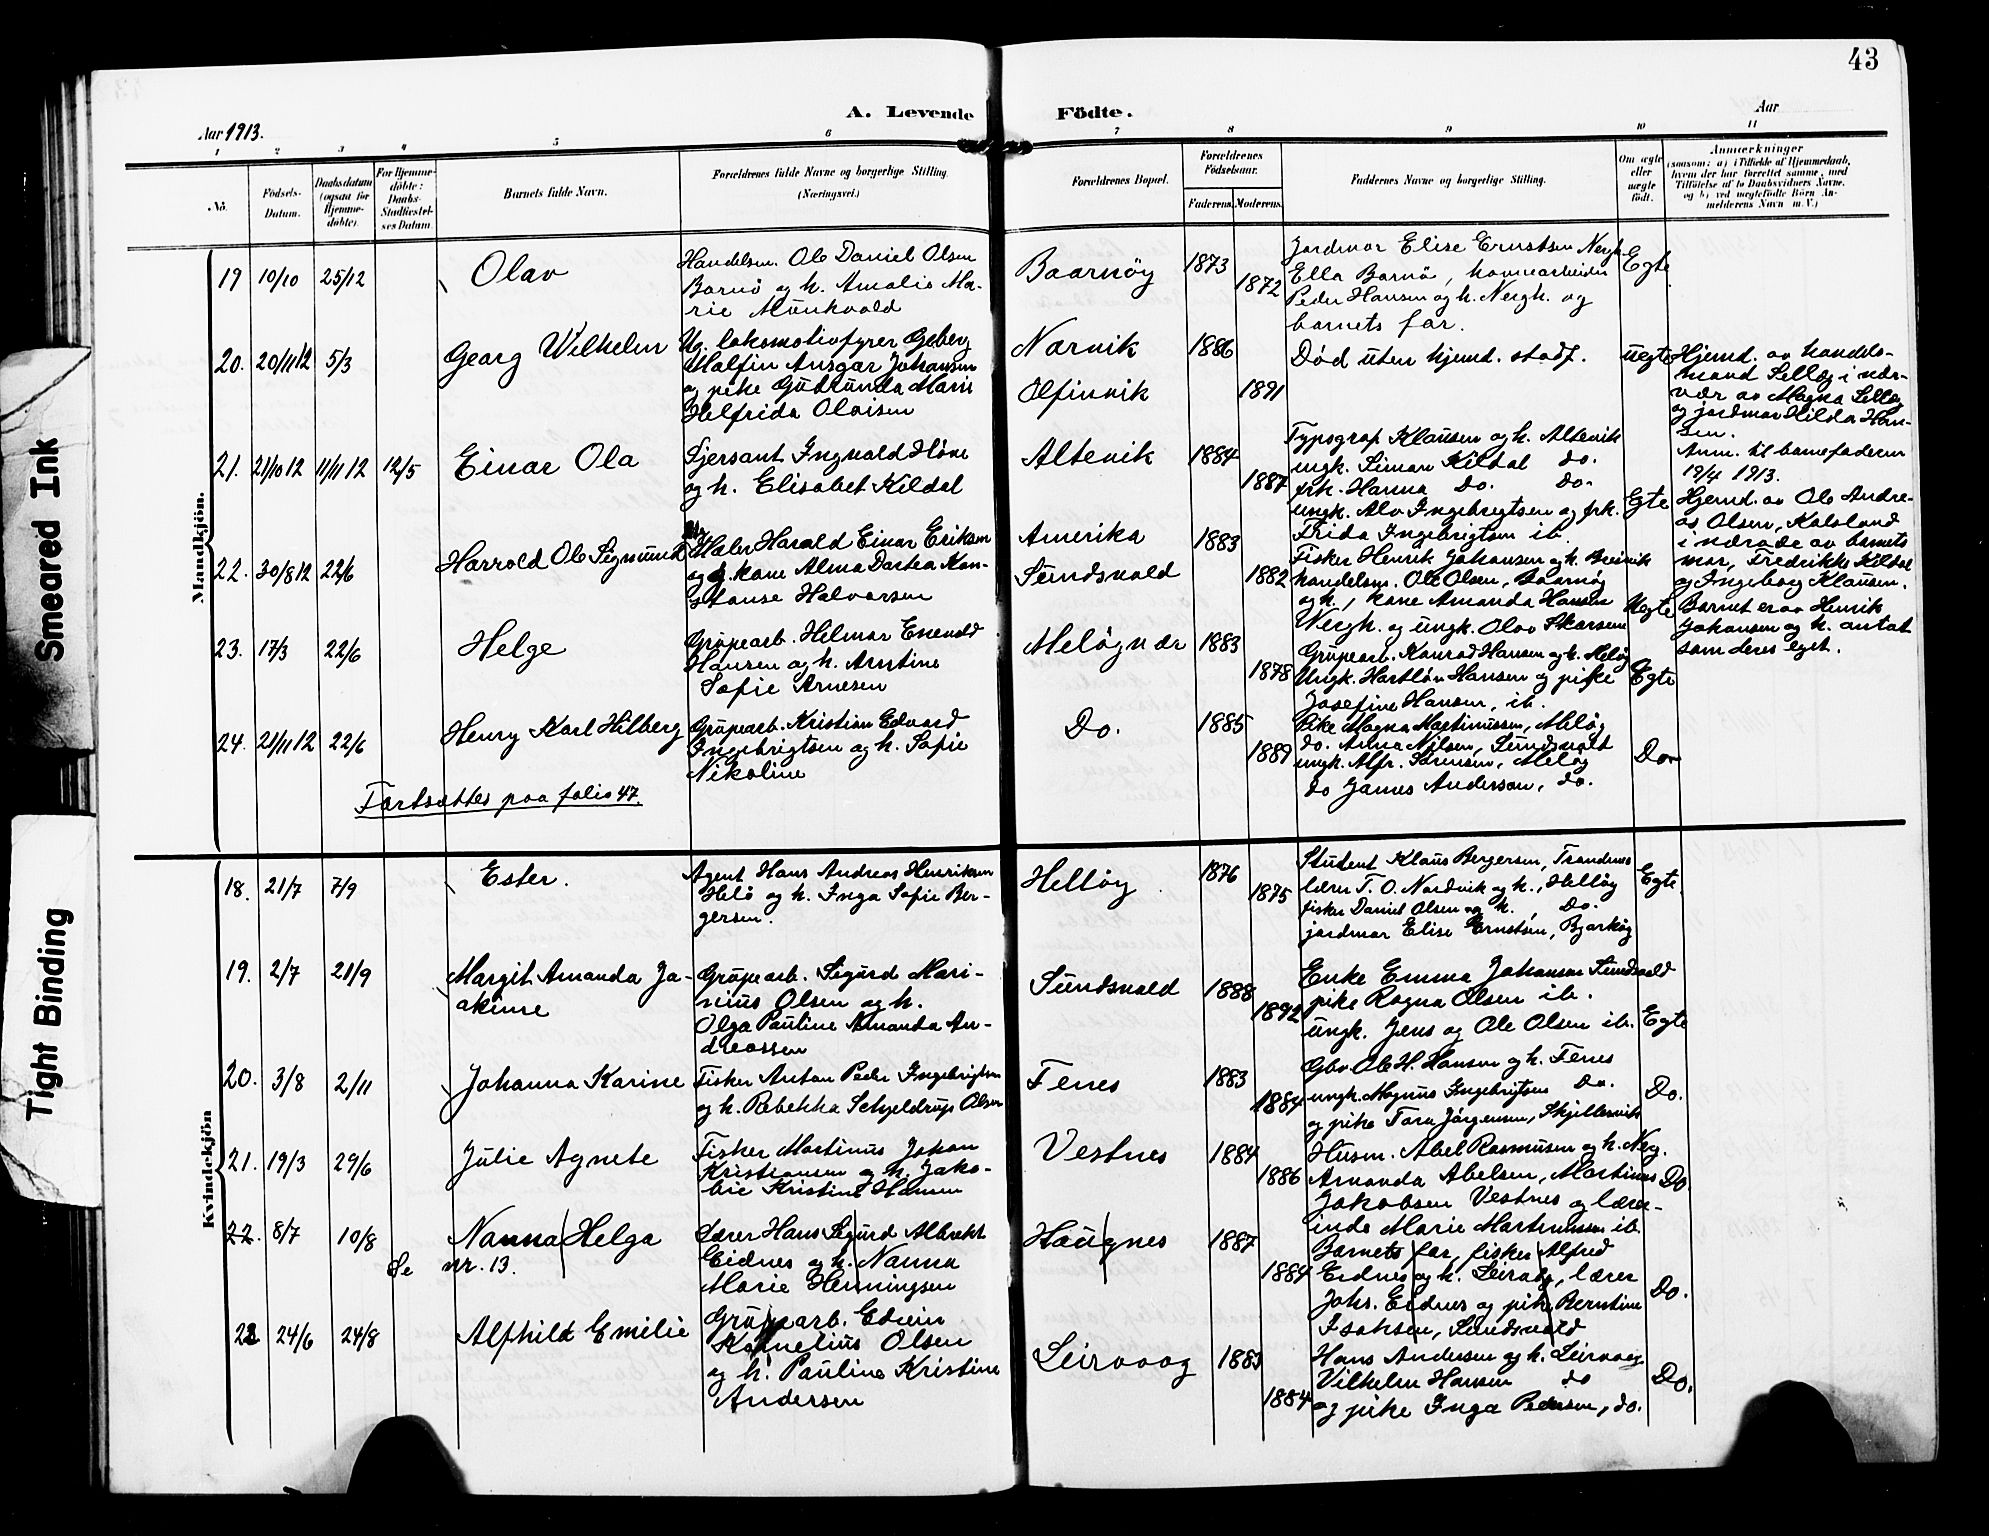 43
A. Levende Födte.
Aar 1913.
Aar
1 2 3 4 5 6 7 8 9 10 11
No.
Födsels-Datum.
Daabsdatum (ogsaa for Hjemmedöbte).
For Hjemmedöbte: Daabs-Stadfæstelses Datum.
Barnets fulde Navn.
Forældrenes fulde Navne og borgerlige Stilling. (Næringsvei.)
Forældrenes Bopæl.
Forældrenes Födselsaar.
Faderens. Moderens.
Faddernes Navne og borgerlige Stilling.
Om ægte eller uægte födt.
Anmærkninger
(saasom: a) i Tilfælde af Hjemmedaab, hvem der har forrettet samme, med Tilföielse af to Daabsvidners Navne, og b) ved uægtefödte Börn Anmelderens Navn m. V.)
Mandkjön.
19 10/10 25/12 Olav
Handelsm. Ole Daniel Olsen
Barnö og h. Amalie Ma-
rie Munkvold
Baarnöy 1873 1872
Jordmor Elise Ernstsen Nergh.
Ella Barnö, havnearbeider
Peder Hansen og h. Nergh. og
barnets far.
Egte
20. 20/11 12 5/3 Georg Wilhelm
Ug. lokomotivfyrer Geberg
Halfin Ansgar Johansen
og pike Gudrunda Marie
Helfrida Olaisen
Narvik 1886
Olfinvik 1891
Död uten hjemd. stadf.
uegte
Hjemd. av handels-
mand Selløg i nær-
vær av Magna Selløg
og jordmor Hilda Han-
sen.
Anm. til barnefaderen
19/4 1913.
21. 21/10 12 11/11 12 12/5 Einar Ola
Sjersant Ingvald Höne
og h. Elisabet Kildal
Altevik 1884 1887
Typograf Klausen og h. Altevik
ungk. Simon Kildal do.
frk. Hanna Do. Do.
ungk. Alv Ingebrigtsen og frk.
Frida Ingebrigtsen ib.
Egte
Hjemd. av Ole Andre-
as Olsen, Kalsland
i nærvær av barnets
mor, Fredrikke Kildal
og Ingeborg Klausen.
22. 30/8 12 22/6 Harrold Ole Sigmund
Maler Harald Einar Eriksen
og g. kone Alma Dortea Kon-
stanse Halvorsen
Amerika 1883
Sundsvold 1882
Fisker Henrik Johansen og h. Breivik
handelsm. Ole Olsen, Baarnöy
og h., kone Amanda Hansen
Nergh. og ungk. Olav Skarsem
Uegte
Barnet er av Henrik
Johansen og h. antat
som deres eget.
23. 17/3 22/6 Helge
Grubearb. Hilmar Enevold
Hansen og h. Arntine
Sofie Arnesen
Melöyvær 1883 1878
Grubearb. Konrad Hansen og h. Melöy
Ungk. Hartlön Hansen og pike
Josefine Hansen, ib.
Egte
24. 21/11 12 22/6 Henry Karl Hilberg
Grubearb. Kristian Edvard
Ingebrigtsen og h. Sofie
Nikoline
Do. 1885 1889
Pike Magna Martinussen, Melöy
do. Anna Nilsen, Sundsvold
ungk. Alfr. Sörensen, Melöy
do James Anderson, do.
Do
Fortsættes paa folio 47.
Kvindekjön
18. 21/7 7/9 Ester.
Agent Hans Andreas Henriksen
Helö og h. Inga Sofie Ber-
gersen.
Hellöy 1876 1875
Student Klaus Bergersen, Trondenes
lærer T. O. Nordvik og h., Hellöy
fisker Daniel Olsen og h. Do.
jordmor Elise Ernstsen, Bjarköy
Egte.
19. 2/7 21/9 Margit Amanda Jo-
akime
Grubearb. Sigurd Mari-
nius Olsen og h.
Olga Pauline Amanda An-
dreassen
Sundsvold 1888 1892
Enke Emma Johansen Sundsvold
pike Ragna Olsen ib.
ungk. Jens og Ole Olsen ib.
Egte
20. 3/8 2/11 Johanna Karine
Fisker Anton Peder Ingebrigtsen
og h. Rebekka Schjeldrup Olsen
Fenes 1883 1884
Gbr. Ole H. Hansen og h. Fenes
ungk. Magnus Ingebrigtsen Do.
og pike Tora Jörgensen, Skjellesvik
Do.
21. 19/3 29/6 Julie Agnete
Fisker Martinus Johan
Kristiansen og h. Jako-
bie Kristine Hansen
Vestnes 1884 1886
Husm. Abel Rasmussen og h. Nerg.
Amanda Abelsen, Martinus
Jakobsen Vestnes og lærer-
inde Marie Martinussen ib.
Do.
22. 8/7 10/8 Nanna Helga
Se nr. 13.
Lærer Hans Sigurd Albrekt
Eidnes og h. Nanna
Marie Henningsen
Haugnes 1887 1884
Barnets far, fisker Alfred
Eidnes og h. Leirvaag, lærer
Johs. Eidnes og pike Berntine
Isaksen, Sundsvold
Do.
22 24/6 24/8 Alfhild Emilie
Grubearb. Edvin
Kornelius Olsen
og h. Pauline Kristine
Andersen
Leirvaag 1883 1884
Hans Andersen og h. Leirvaag
Vilhelm Hansen do
og pike Inga Pedersen, do.
Do.
Smeared Ink
Tight Binding